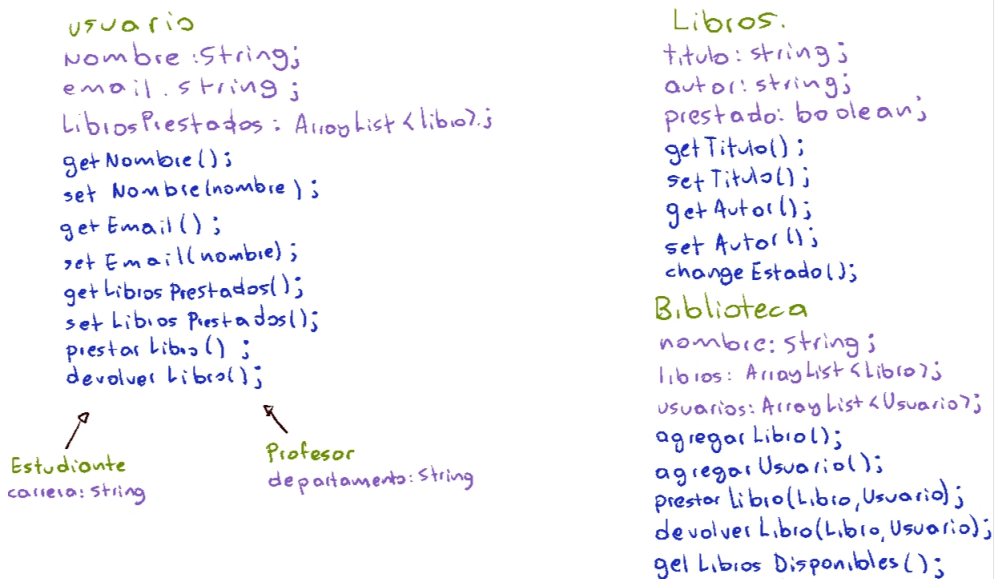 usuario
Nombre :String;
email. string ;
LibrosPrestados : ArrayList <libro>.;
getNombre();
set Nombre(nombre);
getEmail();
set Email(nombre);
getLibros Prestados();
set Libros Prestados();
prestar Libro() ;
devolver Libro();
Estudiante
carrera: String
Profesor
departamento: String
Libros.
titulo: string;
autor: string;
prestado: boolean;
getTitulo();
setTitulo();
get Autor();
set Autor();
change Estado();
Biblioteca
nombre: String;
libros: ArrayList <Libro>;
usuarios: ArrayList <Usuario>;
agregar Libro();
agregar Usuario();
prestar Libro(Libro, Usuario);
devolver Libro(Libro, Usuario);
gel Libros Disponibles();